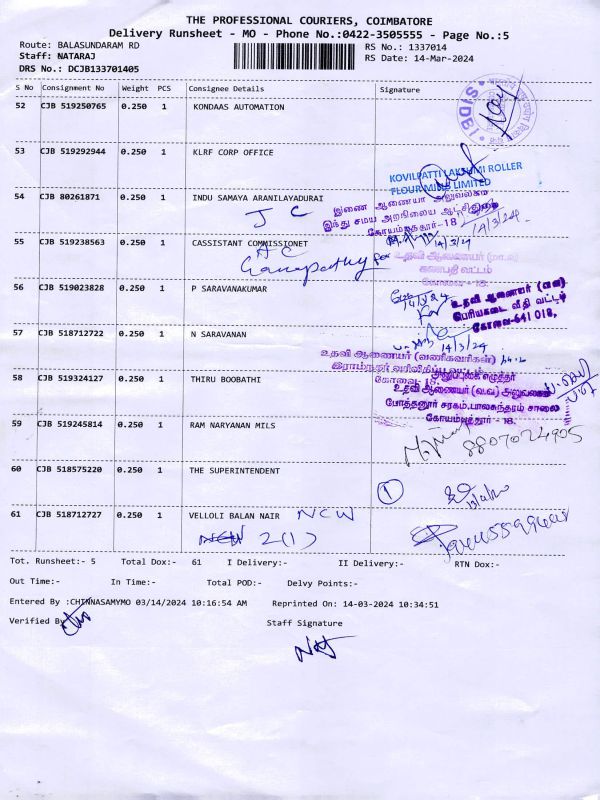 THE PROFESSIONAL COURIERS, COIMBATORE
Delivery Runsheet - MO - Phone No.:0422-3505555 - Page No.:5
Route: BALASUNDARAM RD
RS No.: 1337014
Staff: NATARAJ
RS Date: 14-Mar-2024
DRS No.: DCJB133701405
S No Consignment No Weight PCS Consignee Details Signature
52 CJB 519250765 0.250 1 KONDAAS AUTOMATION
SIDBI
53 CJB 519292944 0.250 1 KLRF CORP OFFICE
KOVILPATTI LAKSHMI ROLLER
FLOUR MILLS LIMITED
54 CJB 80261871 0.250 1 INDU SAMAYA ARANILAYADURAI
J C
இணை ஆணையர் அலுவலகம்
இந்து சமய அறநிலைய ஆட்சித்துறை
கோயம்புத்தூர்-18
14/3/24
55 CJB 519238563 0.250 1 CASSISTANT COMMISSIONET
AC
Ganapathy
14/3/24
உதவி ஆணையர் (மா.வ)
கணபதி வட்டம்
கோவை - 18.
56 CJB 519023828 0.250 1 P SARAVANAKUMAR
உதவி ஆணையர்
பெரியகடை வீதி வட்டம்
கோவை-641 018.
57 CJB 518712722 0.250 1 N SARAVANAN
14/3/24
உதவி ஆணையர் (வணிகவரிகள்)
கோவை- 18.
58 CJB 519324127 0.250 1 THIRU BOOBATHI
உதவி ஆணையர் (வ.வ) அலுவலகம்
போத்தனூர் சரகம்,பாலசுந்தரம் சாலை
கோயம்புத்தூர் - 18.
59 CJB 519245814 0.250 1 RAM NARYANAN MILS
8807024905
60 CJB 518575220 0.250 1 THE SUPERINTENDENT
1
61 CJB 518712727 0.250 1 VELLOLI BALAN NAIR
NCW
NCW 2(1)
Tot. Runsheet:- 5 Total Dox:- 61 I Delivery:- II Delivery:- RTN Dox:-
Out Time:- In Time:- Total POD:- Delvy Points:-
Entered By :CHINNASAMYMO 03/14/2024 10:16:54 AM Reprinted On: 14-03-2024 10:34:51
Verified By
Staff Signature